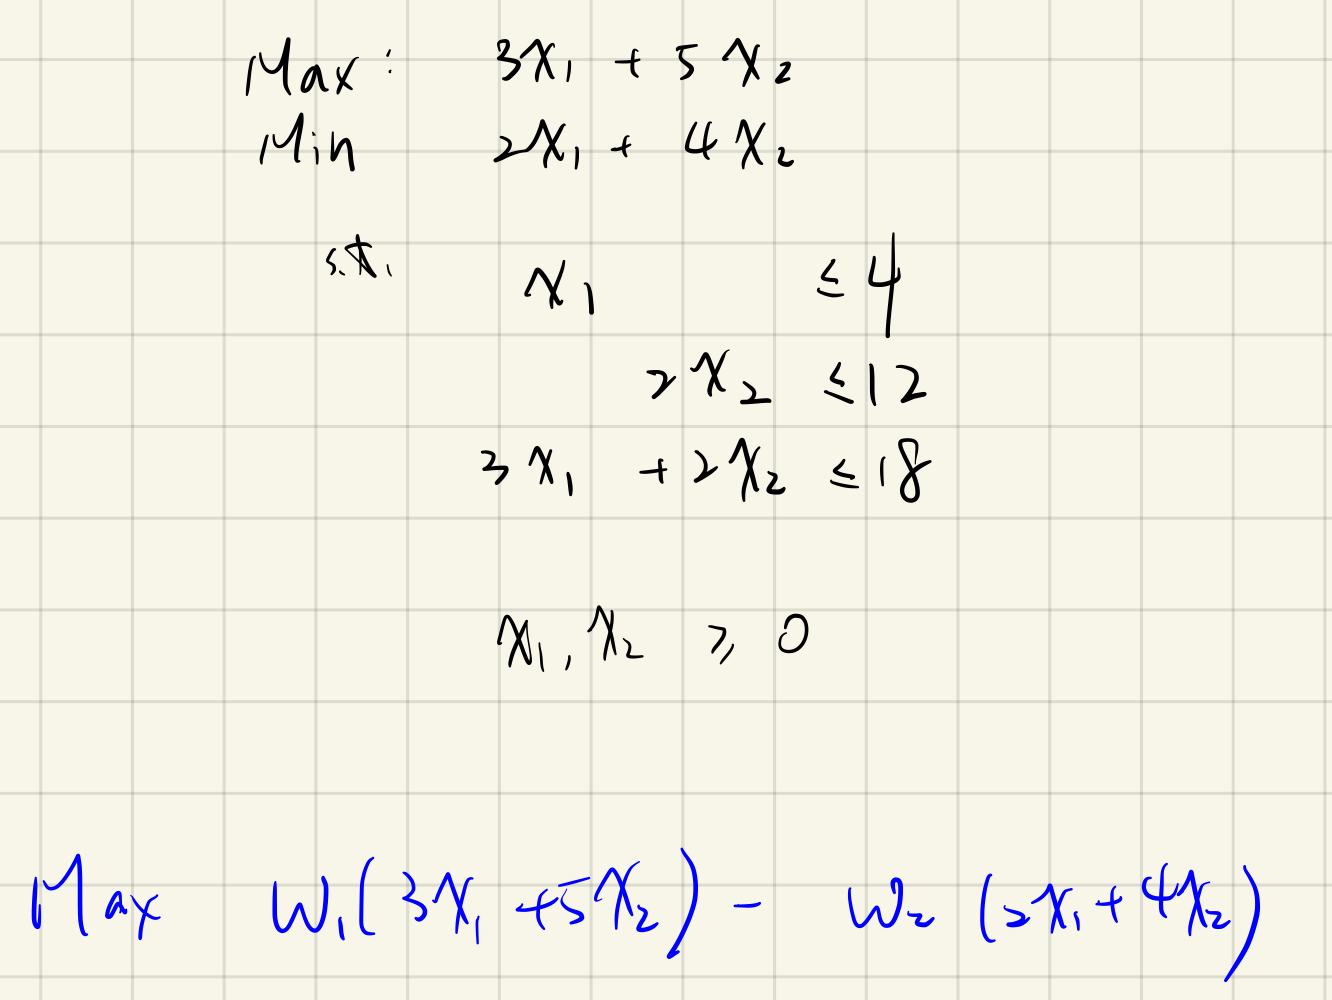 Max: 3x₁ + 5x₂
Min 2x₁ + 4x₂
s.t. x₁ ≤ 4
2x₂ ≤ 12
3x₁ + 2x₂ ≤ 18
x₁, x₂ ≥ 0
Max W₁(3x₁ + 5x₂) - W₂(2x₁ + 4x₂)